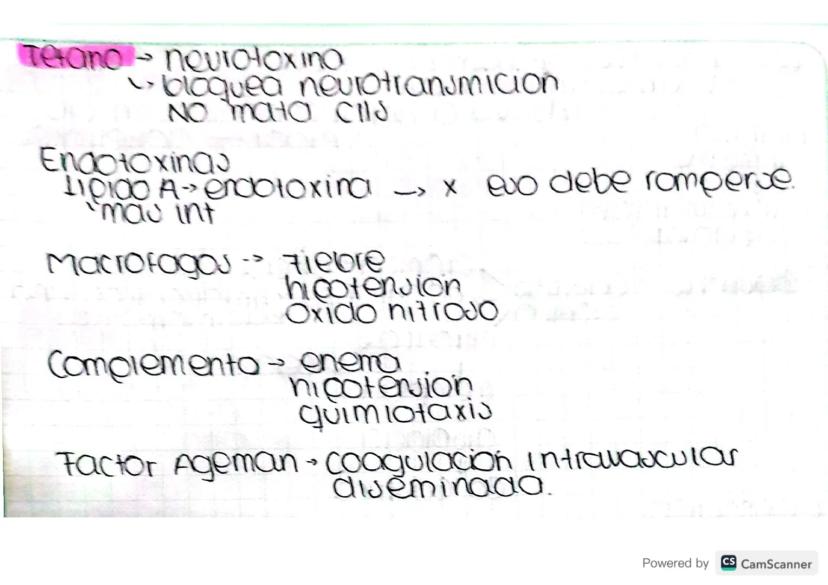 Tetano → neurotoxina
↳ bloquea neurotransmicion
NO mata clls
Endotoxinas
Lipido A → endotoxina → x eso debe romperse.
mas int
Macrofagos → fiebre
hipotension
oxido nitroso
Complemento → enema
hipotension
quimiotaxis
Factor Ageman → coagulación intravascular
diseminada.
Powered by CS CamScanner